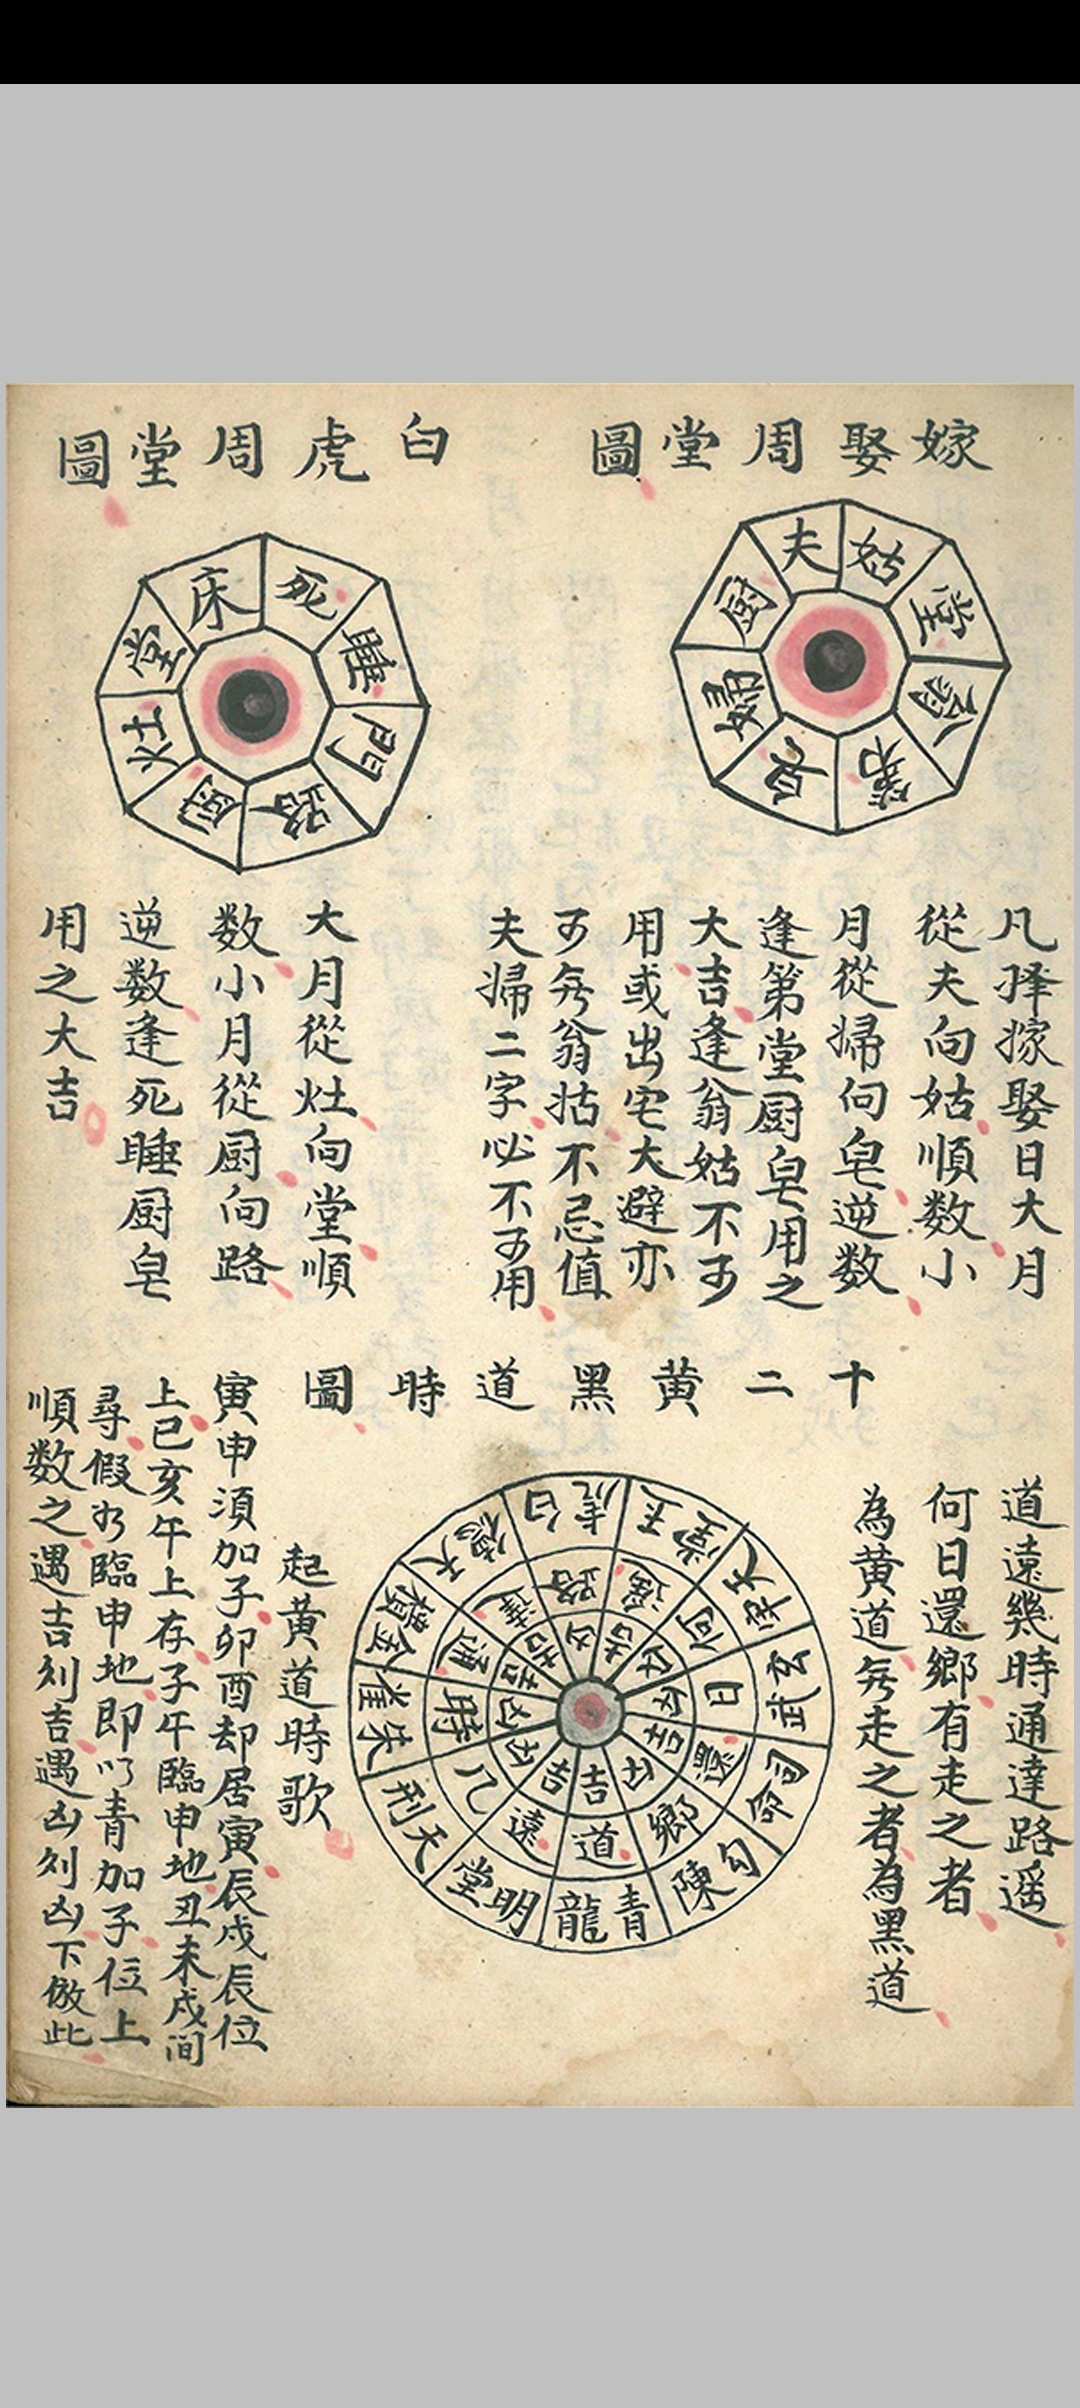 嫁娶周堂圖
夫
姑
堂
翁
第
皂
婦
厨
凡择嫁娶日大月
從夫向姑順数小
月從婦向皂逆数
逢第堂厨皂用之
大吉逢翁姑不可
用或出宅大避亦
可無翁姑不忌值
夫婦二字必不可用
白虎周堂圖
床
死
睡
門
路
厨
灶
堂
大月從灶向堂順
数小月從厨向路
逆数逢死睡厨皂
用之大吉
十二黄黑道時圖
道遠幾時通達路遥
何日還鄉有走之者
為黄道無走之者為黑道
青龍 道 吉
明堂 遠 吉
天刑 几 凶
朱雀 時 凶
金櫃 通 吉
天德 達 吉
白虎 路 凶
玉堂 遥 吉
天牢 何 凶
玄武 日 凶
司命 還 吉
勾陳 鄉 凶
起黄道時歌
寅申須加子卯酉却居寅辰戌辰位
上巳亥午上存子午臨申地丑未戌间
尋假如臨申地即以青加子位上
順数之遇吉則吉遇凶則凶下倣此